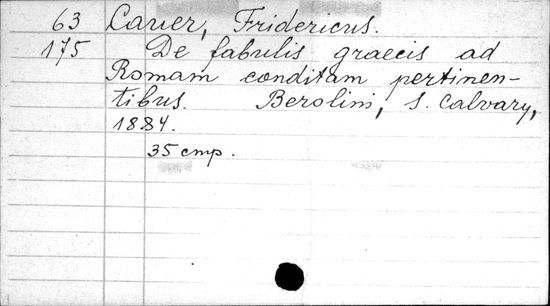 63 Cauer, Fridericus.
175 De fabulis graecis ad
Romam conditam pertinen-
tibus. Berolini, S. Calvary,
1884.
35 cmp.